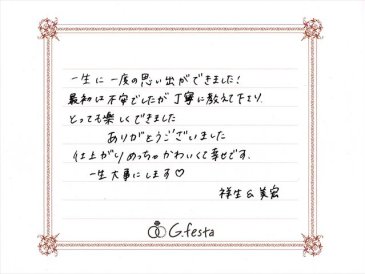 一生に一度の思い出ができました!
最初は不安でしたが丁寧に教えて下さり
とっても楽しくできました
ありがとうございました
仕上がりめっちゃかわいくて幸せです。
一生大事にします♡
祥生&美宏
G.festa